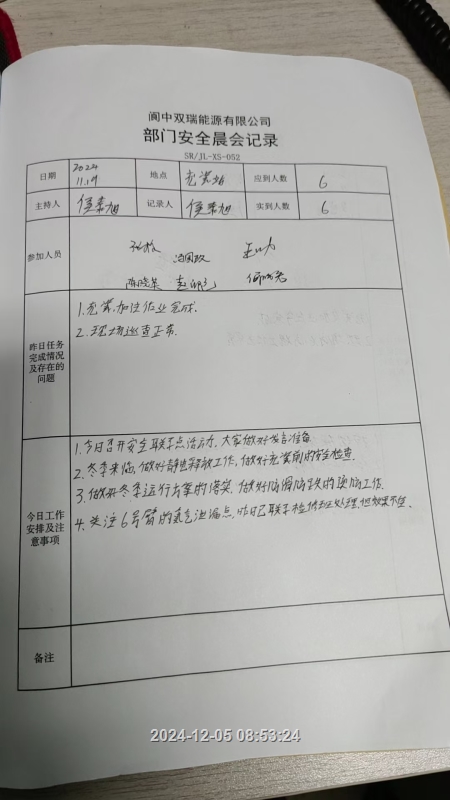 阆中双瑞能源有限公司
部门安全晨会记录
SR/JL-XS-052
日期 2024 11.19 地点 充装站 应到人数 6
主持人 记录人 实到人数 6
参加人员
昨日任务完成情况及存在的问题
1.充装、加注作业完成.
2.现场巡查正常.
今日工作安排及注意事项
1.今日召开安全联系点活动,大家做好发言准备
2.冬季来临,做好静电释放工作,做好充装前的安全检查.
3.做好冬季运行方案的落实,做好防滑防跌的预防工作
4.关注6号臂的氢气泄漏点,昨日已联系检修班处理,但效果不佳.
备注
2024-12-05 08:53:24